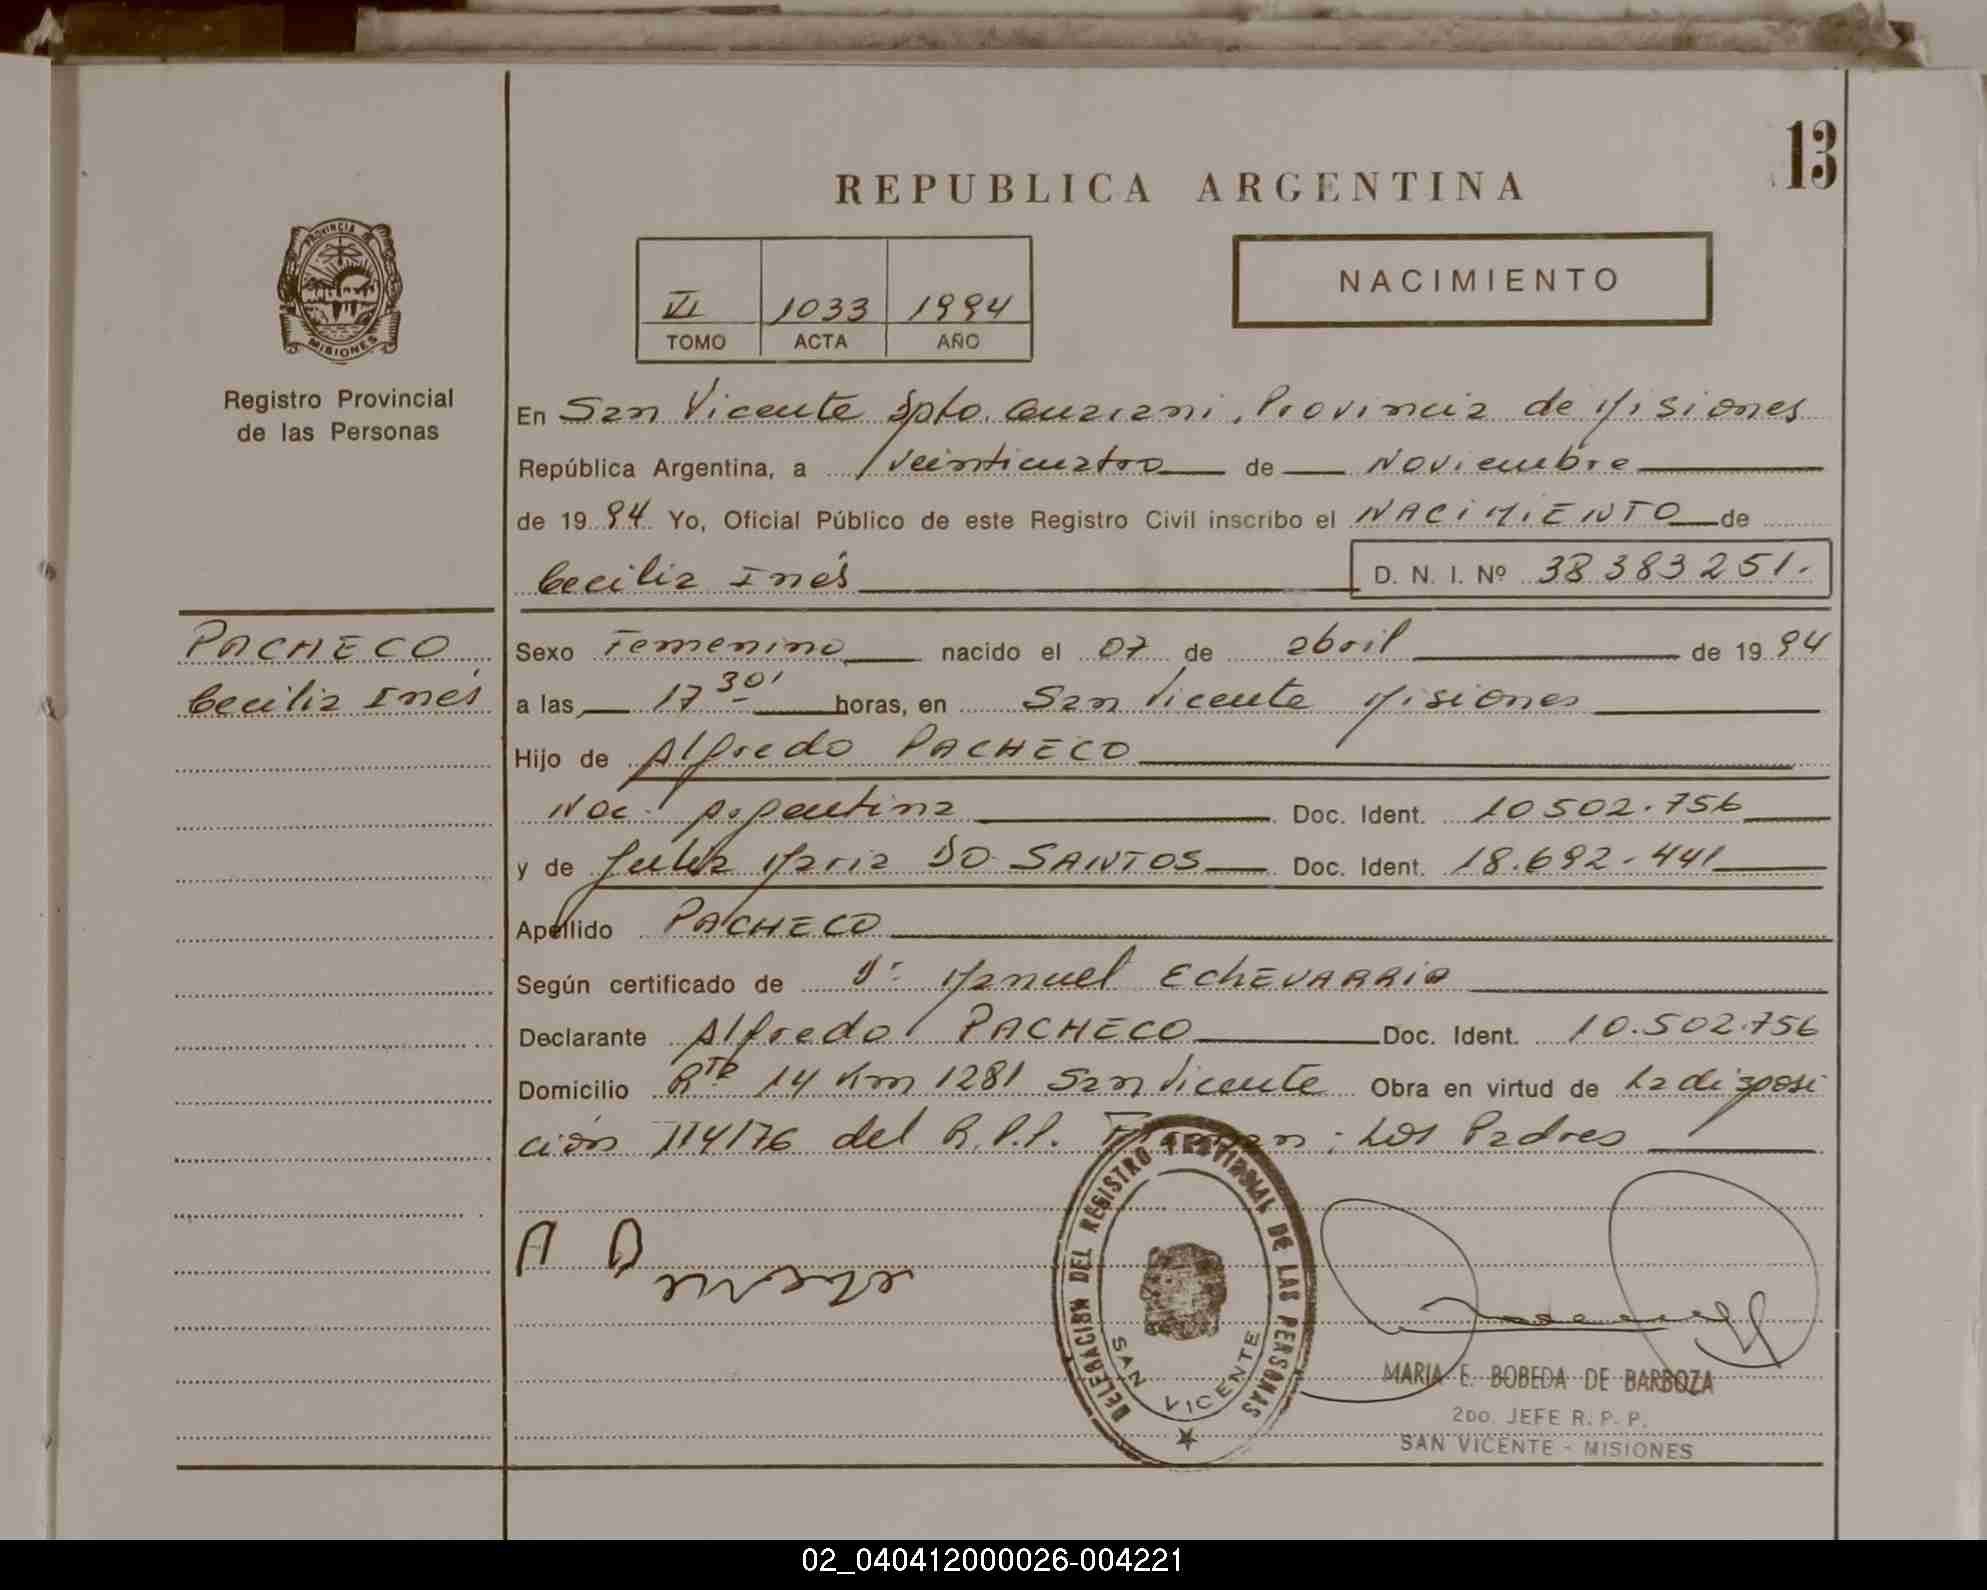 13
REPUBLICA ARGENTINA
PROVINCIA DE
MISIONES
Registro Provincial
de las Personas
VI 1033 1994
TOMO ACTA AÑO
NACIMIENTO
En San Vicente Dpto. Guarani, Provincia de Misiones
República Argentina, a veinticuatro de Noviembre
de 1994 Yo, Oficial Público de este Registro Civil inscribo el NACIMIENTO de
Cecilia Inés D. N. I. Nº 38383251.
PACHECO
Cecilia Inés
Sexo Femenino nacido el 07 de abril de 1994
a las 17 30' horas, en San Vicente Misiones
Hijo de Alfredo PACHECO
Nac. Argentina Doc. Ident. 10502.756
y de Julia Maria DO SANTOS Doc. Ident. 18.692.441
Apellido PACHECO
Según certificado de Dr Manuel EchEVARRIA
Declarante Alfredo PACHECO Doc. Ident. 10.502.756
Domicilio Rta 14 Km 1281 San Vicente Obra en virtud de La disposi
ción 114/76 del R.P.P. Firman: Los Padres
DELEGACION DEL REGISTRO PROVINCIAL DE LAS PERSONAS
SAN VICENTE
MARIA E. BOBEDA DE BARBOZA
2DO. JEFE R. P. P.
SAN VICENTE - MISIONES
02_040412000026-004221